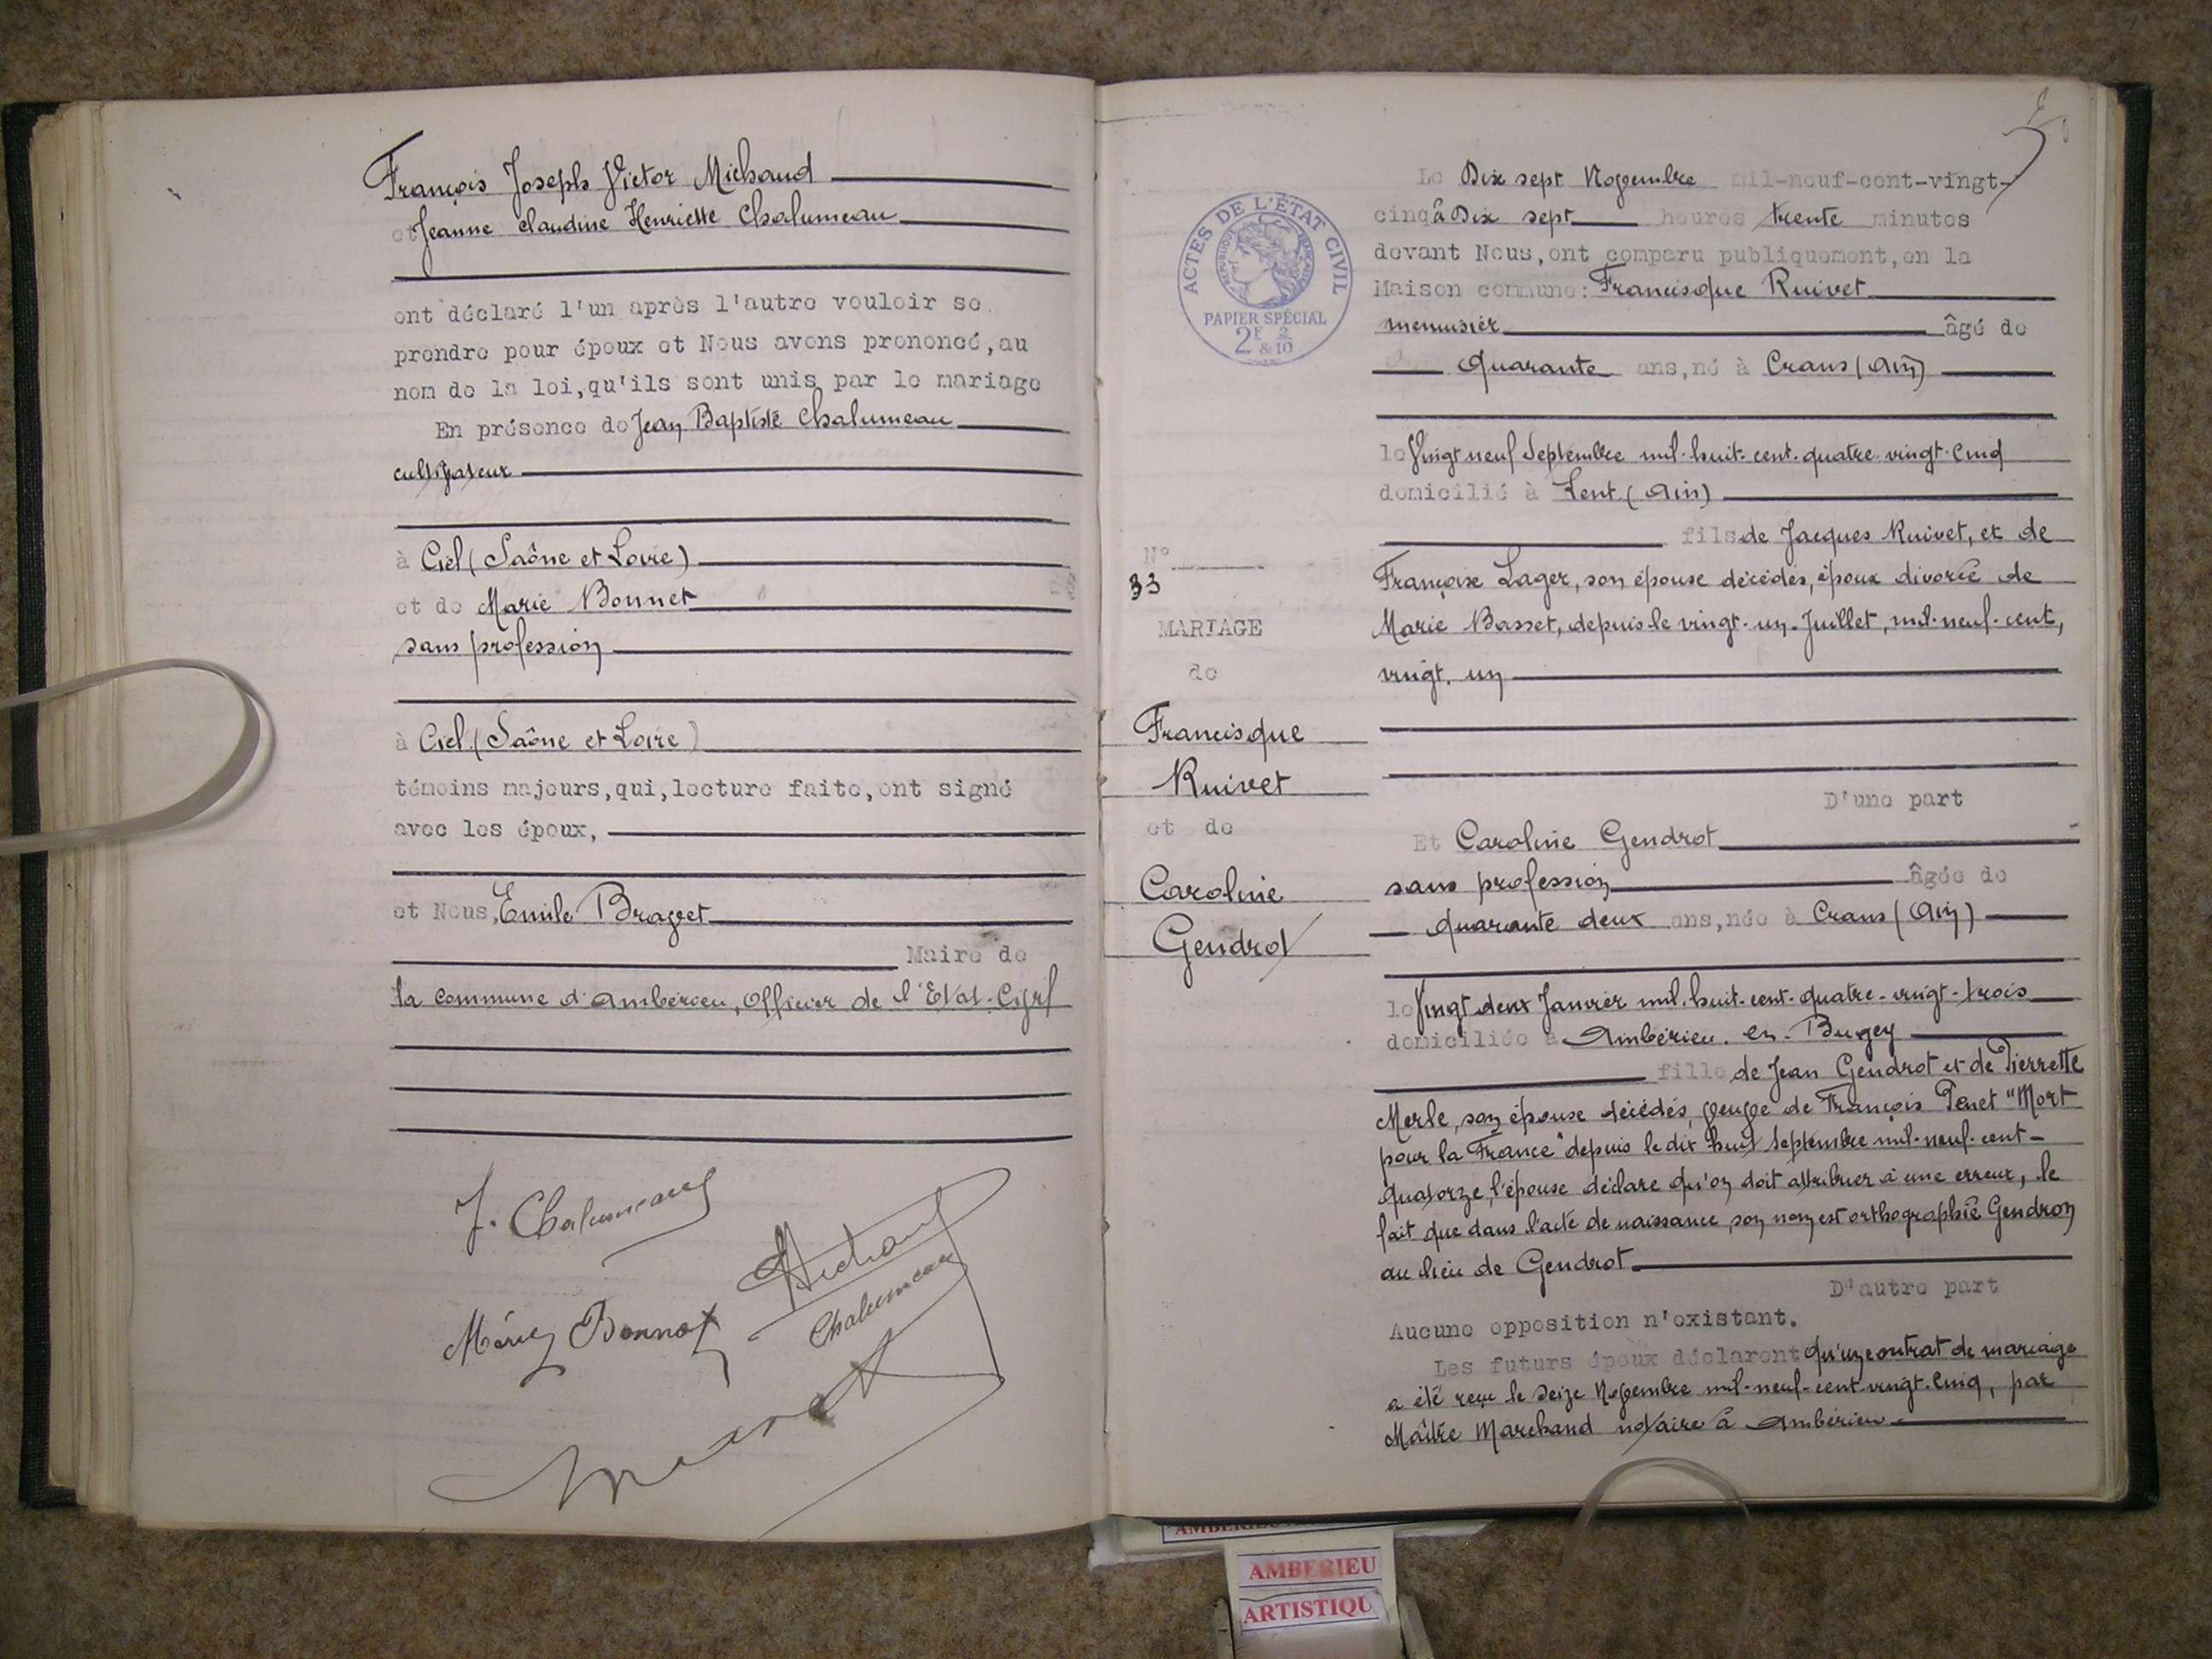 François Joseph Victor Michaud
et Jeanne Claudine Henriette Chalumeau
ont déclaré l'un après l'autre vouloir se
prendre pour époux et Nous avons prononcé, au
nom de la loi, qu'ils sont unis par le mariage
En présence de Jean Baptiste Chalumeau
cultivateur
à Ciel (Saône et Loire)
et de Marie Bonnet
sans profession
à Ciel (Saône et Loire)
témoins majeurs, qui, lecture faite, ont signé
avec les époux,
et Nous, Emile Bravet
Maire de
la commune d'Ambérieu, Officier de l'Etat-Civil
J. Chalumeau
Michaud
Chalumeau
Bonnot
ACTES DE L'ÉTAT CIVIL
RÉPUBLIQUE FRANÇAISE
PAPIER SPÉCIAL
2F 2
& 10
N°
33
MARIAGE
de
Francisque
Ruivet
et de
Caroline
Gendrot
Le Dix sept Novembre mil-neuf-cent-vingt-
cinq à Dix sept heures trente minutes
devant Nous, ont comparu publiquement, en la
Maison commune: Francisque Ruivet
menuisier âgé de
quarante ans, né à Crans (Ain)
le Vingt neuf Septembre mil-huit-cent-quatre-vingt-cinq
domicilié à Lent (Ain)
fils de Jacques Ruivet, et de
Françoise Lager, son épouse décédés, époux divorcé de
Marie Basset, depuis le vingt-un-Juillet, mil-neuf-cent,
vingt-un
D'une part
Et Caroline Gendrot
sans profession âgée de
quarante deux ans, née à Crans (Ain)
le Vingt deux Janvier mil-huit-cent-quatre-vingt-trois
domiciliée à Ambérieu-en-Bugey
fille de Jean Gendrot et de Pierrette
Merle, son épouse décédés, veuve de François Penet "Mort
pour la France" depuis le dix huit Septembre mil-neuf-cent-
quatorze, l'épouse déclare qu'on doit attribuer à une erreur, le
fait que dans l'acte de naissance, son nom est orthographié Gendron
au lieu de Gendrot
D'autre part
Aucune opposition n'existant.
Les futurs époux déclarent qu'un contrat de mariage
a été reçu le seize Novembre mil-neuf-cent-vingt-cinq, par
Maître Marchand notaire à Ambérieu
AMBERIEU
ARTISTIQU